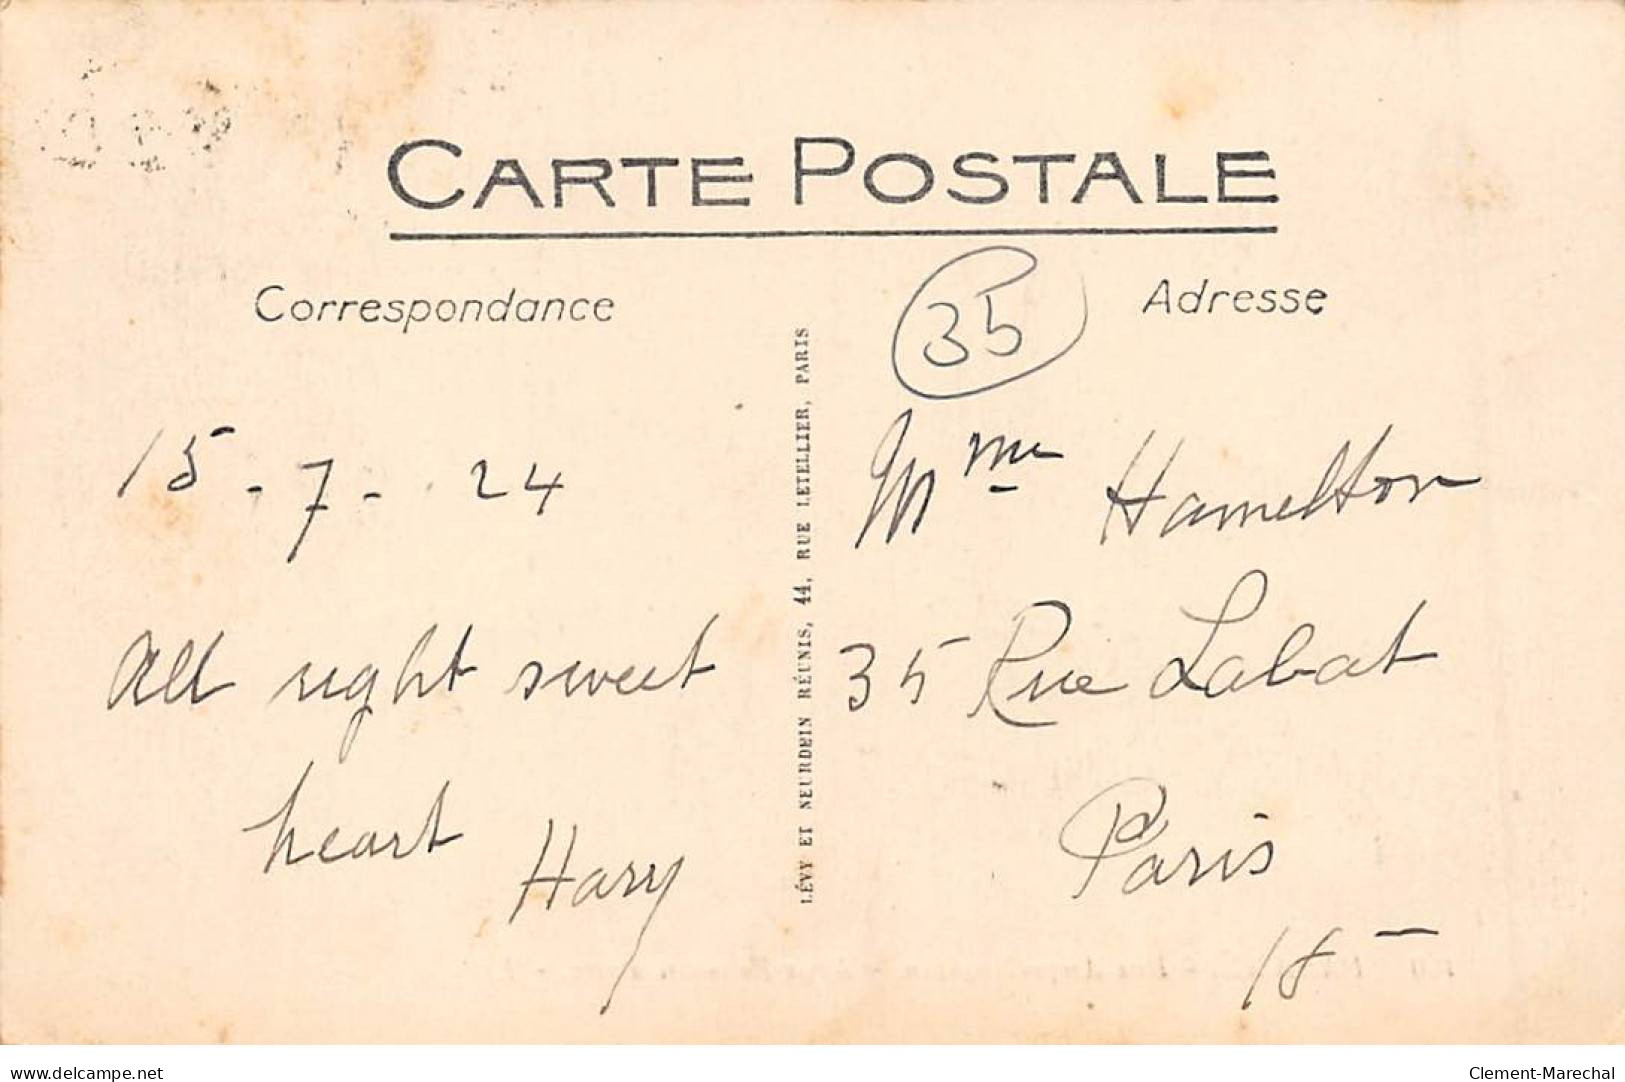 CARTE POSTALE
Correspondance
15-7-24
All right sweet
heart
Hary
LÉVY ET NEURDEIN RÉUNIS, 44, RUE LETELLIER, PARIS
Adresse
35
Mme Hamelton
35 Rue Labat
Paris
18 -
www.delcampe.net
Clement-Marechal